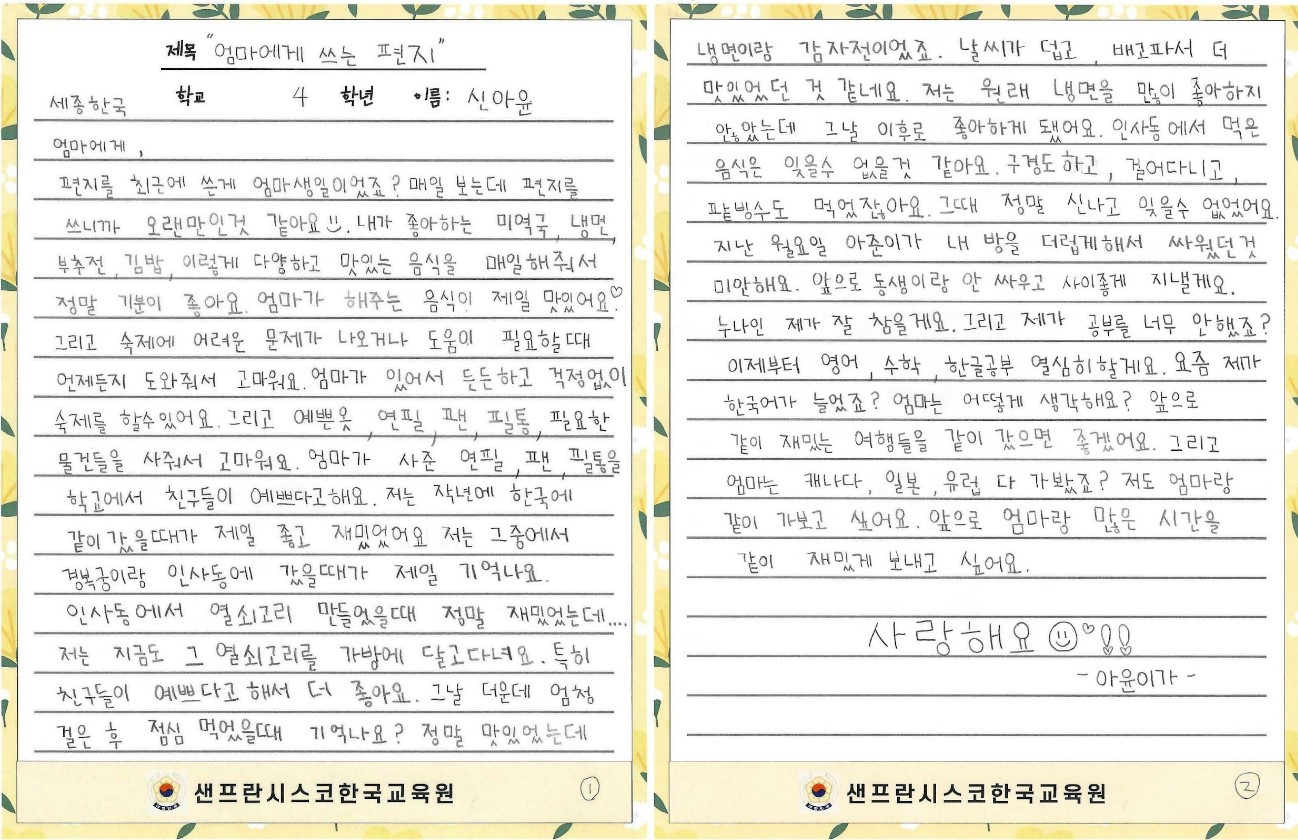 제목 "엄마에게 쓰는 편지"
세종한국 학교 4 학년 이름: 신아윤
엄마에게,
편지를 최근에 쓴게 엄마생일이었죠? 매일 보는데 편지를
쓰니까 오랜만인것 같아요☺. 내가 좋아하는 미역국, 냉면,
부추전, 김밥, 이렇게 다양하고 맛있는 음식을 매일해줘서
정말 기분이 좋아요. 엄마가 해주는 음식이 제일 맛있어요♡
그리고 숙제에 어려운 문제가 나오거나 도움이 필요할때
언제든지 도와줘서 고마워요. 엄마가 있어서 든든하고 걱정없이
숙제를 할수있어요. 그리고 예쁜옷, 연필, 팬, 필통, 필요한
물건들을 사줘서 고마워요. 엄마가 사준 연필, 팬, 필통을
학교에서 친구들이 예쁘다고해요. 저는 작년에 한국에
같이 갔을때가 제일 좋고 재밌었어요 저는 그중에서
경복궁이랑 인사동에 갔을때가 제일 기억나요.
인사동에서 열쇠고리 만들었을때 정말 재밌었는데....
저는 지금도 그 열쇠고리를 가방에 달고다녀요. 특히
친구들이 예쁘다고 해서 더 좋아요. 그날 더운데 엄청
걸은 후 점심 먹었을때 기억나요? 정말 맛있었는데
샌프란시스코한국교육원 ①
냉면이랑 감자전이었죠. 날씨가 덥고, 배고파서 더
맛있었던 것 같네요. 저는 원래 냉면을 많이 좋아하지
않았는데 그날 이후로 좋아하게 됐어요. 인사동에서 먹은
음식은 잊을수 없을것 같아요. 구경도하고, 걸어다니고,
팥빙수도 먹었잖아요. 그때 정말 신나고 잊을수 없었어요.
지난 월요일 아준이가 내 방을 더럽게해서 싸웠던것
미안해요. 앞으로 동생이랑 안 싸우고 사이좋게 지낼게요.
누나인 제가 잘 참을게요. 그리고 제가 공부를 너무 안했죠?
이제부터 영어, 수학, 한글공부 열심히할게요. 요즘 제가
한국어가 늘었죠? 엄마는 어떻게 생각해요? 앞으로
같이 재밌는 여행들을 같이 갔으면 좋겠어요. 그리고
엄마는 캐나다, 일본, 유럽 다 가봤죠? 저도 엄마랑
같이 가보고 싶어요. 앞으로 엄마랑 많은 시간을
같이 재밌게 보내고 싶어요.
사랑해요☺♡!!
- 아윤이가 -
샌프란시스코한국교육원 ②